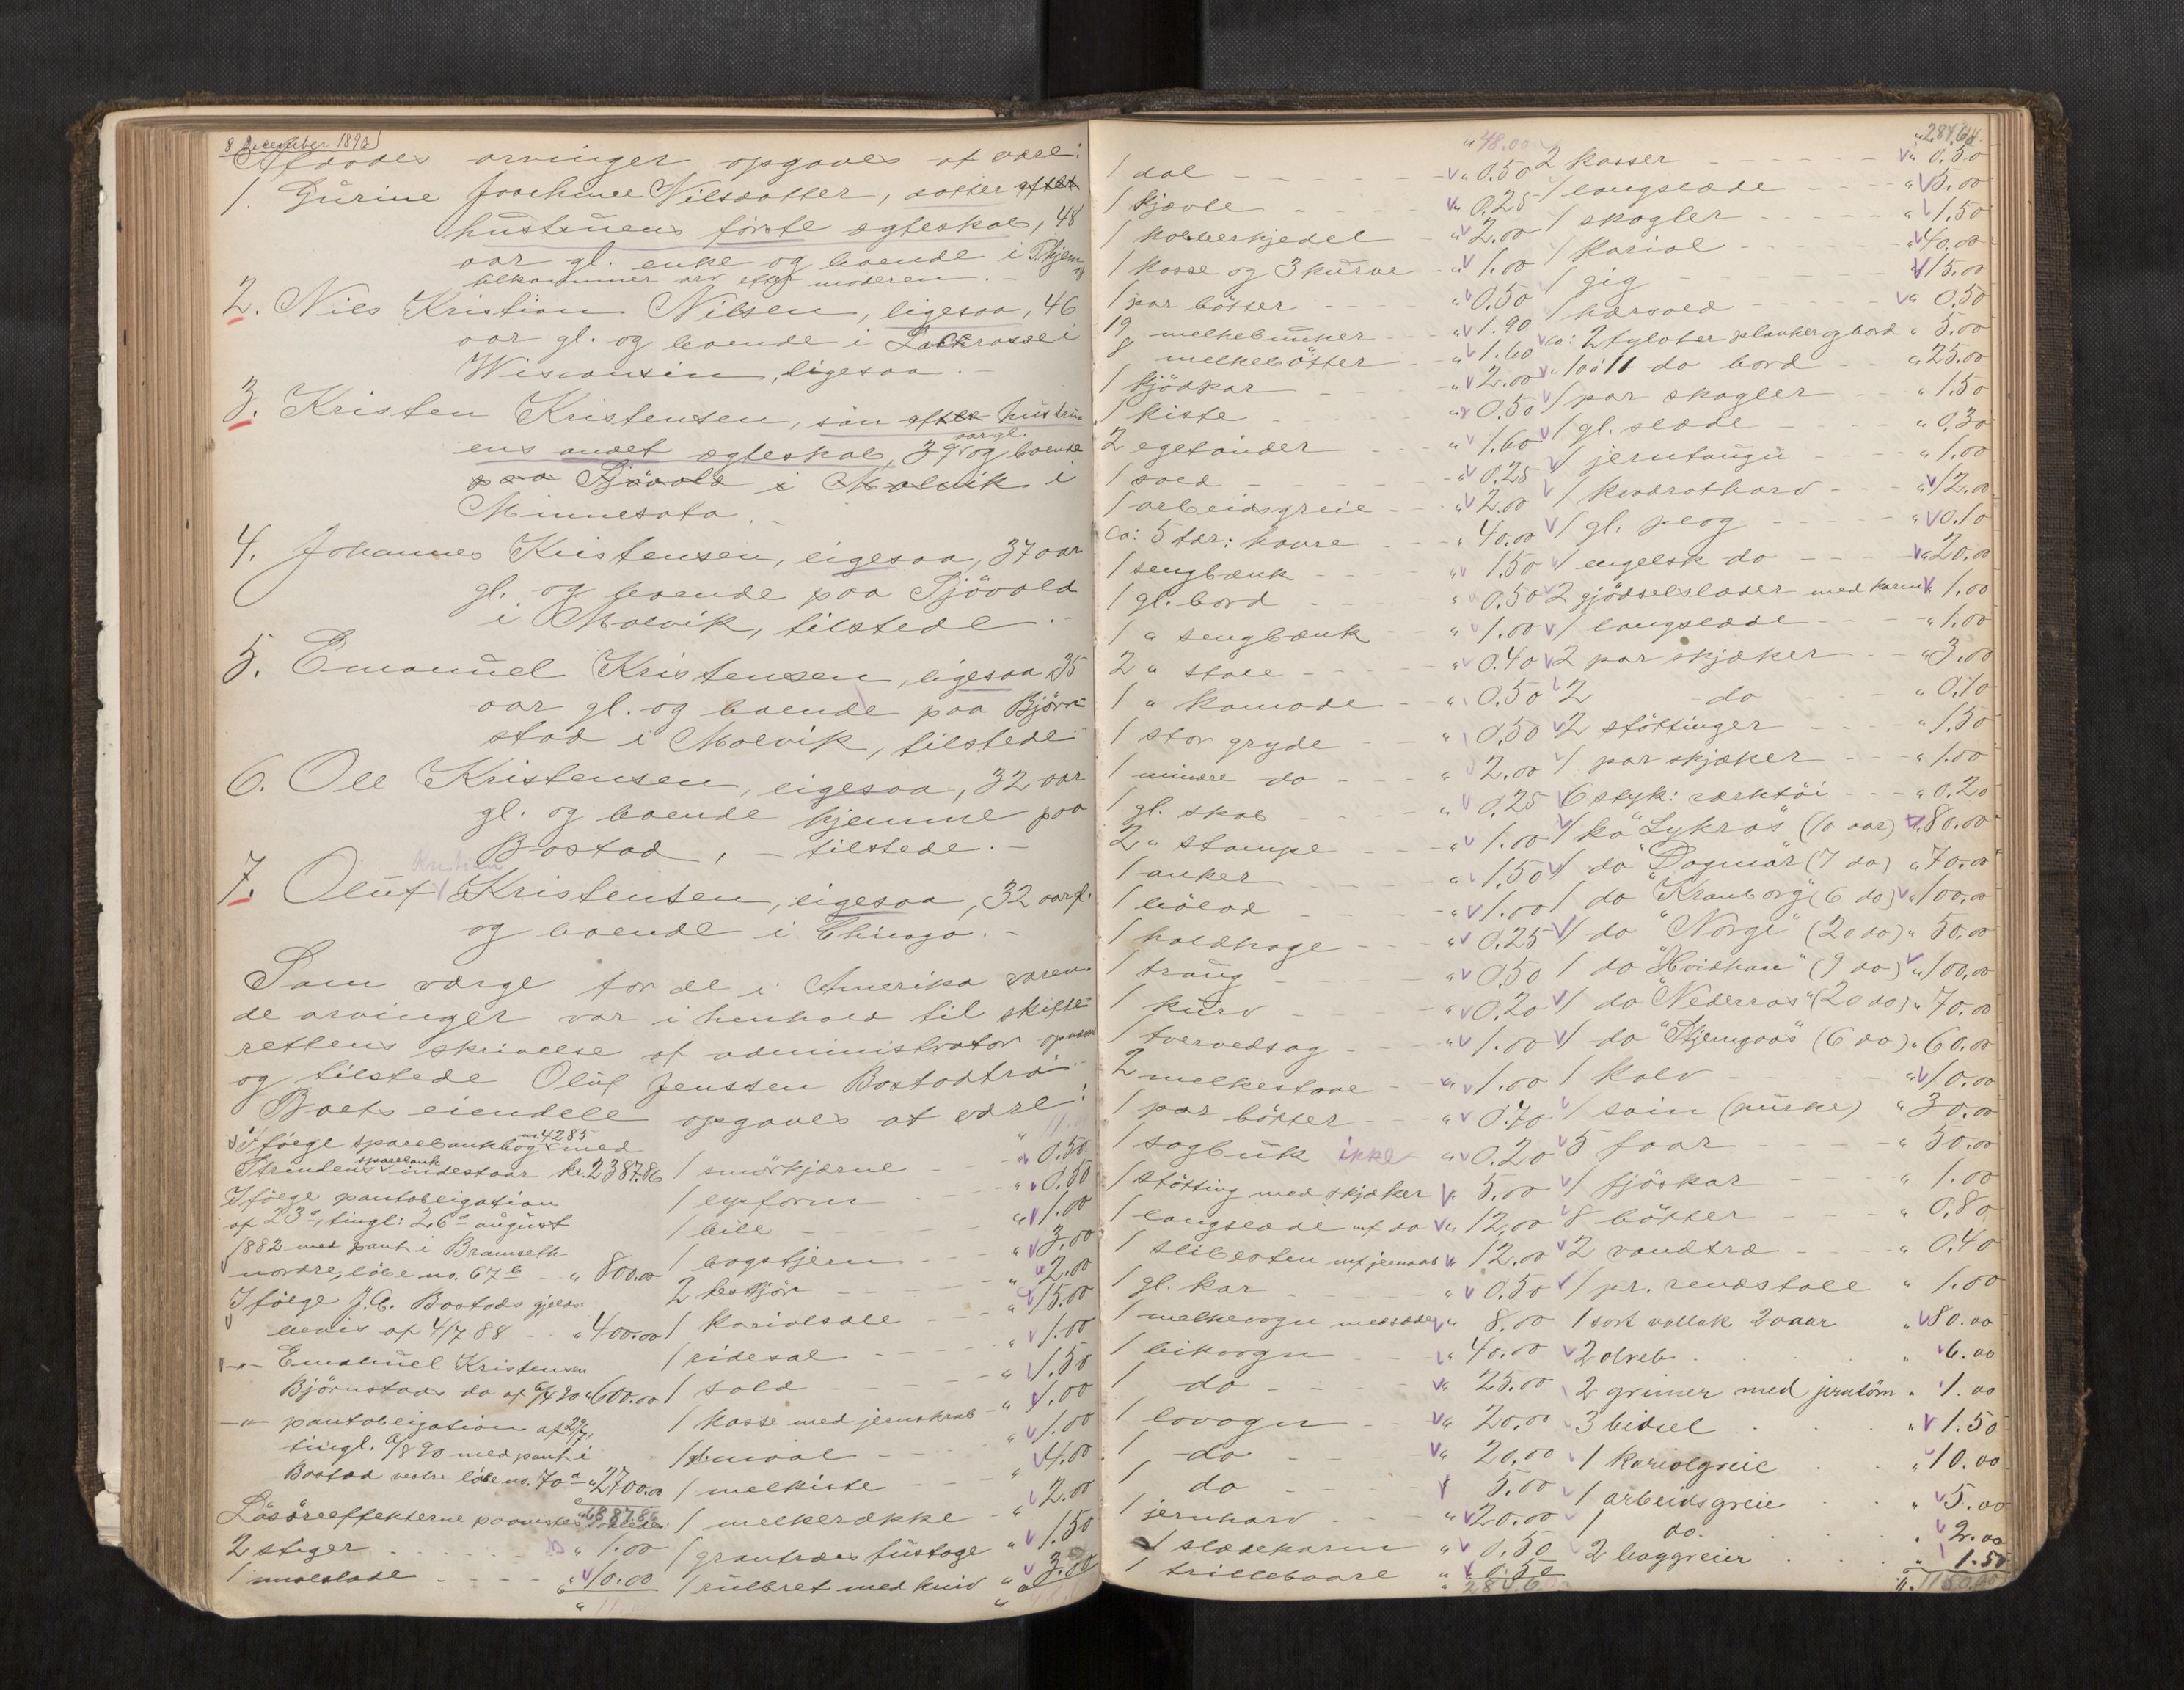 8 December 1892
Afdødes arvinger opgaves at være:
1. Gurine Joachime Nilsdatter, datter efter
hustruens første ægteskab, 48
aar gl. enke og boende i Thjem
tilkommer arv efter moderen.
2. Nils Kristian Nilsen, ligesaa, 46
aar gl. og boende i Lacrosse i
Wisconsin, ligesaa.-
3. Kristen Kristensen, sön efter hustru
ens andet ægteskab, 39 aar gl. og boende
paa Sjövold i Malvik i
Minnesota.-
4. Johannes Kristensen, ligesaa, 37 aar
gl. og boende paa Sjövold
i Malvik, tilstede.-
5. Emanuel Kristensen, ligesaa, 35
aar gl. og boende paa Björn
stad i Malvik, tilstede.-
6. Ole Kristensen, ligesaa, 32 aar
gl. og boende hjemme paa
Bostad, - tilstede.-
Kristian
7. Oluf Kristensen, ligesaa, 32 aar gl.
og boende i Chicago.-
Som værge for de i Amerika væren
de arvinger var i henhold til skifte
rettens skrivelse af administrator opnævnt
og tilstede Oluf Jenssen Bostadtrö.
Boets eiendele opgaves at være:
Ifölge sparebankbog no. 4285 med
Strindens sparebank indestaar kr. 2387.86
Ifölge pantobligation
af 23de, tingl: 26de august
1882 med pant i Bramseth
nordre, löbe no. 67b - " 800.00
Ifölge J. C. Bostads gjelds
bevis af 4/7 88 - - " 400.00
-"- Emanuel Kristensen
Björnstads do af 6/4 90 " 600.00
-"- pantobligation af 29/7,
tingl. 9/8 90 med pant i
Bostad vestre löbe no. 70a - " 2700.00
6887.86
Lösöreeffekterne paavistes saaledes:
2 stiger - - - " 1.00
1 muldslade - - - " 10.00
" 11.00
" 11.00
1 smörkjærne - - " 0.50
1 lysform - - " 0.50
1 bile - - - " 1.00
1 bogstjern - " 3.00
2 hestkjör - - - " 2.00
1 kariolsæle - - " 15.00
1 ridesal - - - " 1.00
1 sold - - - - " 1.50
1 kasse med jernskrab - " 1.00
1 gl. moal - - - " 1.00
1 melkiste - - - " 4.00
1 melkerække - - " 2.00
1 grantræs fustage " 1.50
1 rulbret med kniv " 3.00
" 48.00
1 dal - - - - - " 0.50
1 kjævle - - - - " 0.25
1 kobberkjedel - " 2.00
1 kasse og 3 kurve - " 1.00
1 par bötter - - " 0.50
19 melkebunker - - " 1.90
8 melkebötter - - " 1.60
1 fjöskar - - - " 2.00
1 kiste - - - - " 0.50
2 egetönder - - - " 1.60
1 saed - - - - - " 0.25
1 arbeidsgreie - - " 2.00
ca: 5 tdr: havre - - " 40.00
1 sengbænk - - - " 1.50
1 gl. bord - - - - " 0.50
1 " sengbænk - - " 1.00
2 " stole - - - - " 0.40
1 " komode - - - " 0.50
1 stor gryde - - " 0.50
1 mindre do - - - " 2.00
1 gl. skab - - - - " 0.25
2 " stampe - - - " 1.00
1 anker - - - - " 1.50
1 bölad - - - - " 1.00
1 holdhage - - - " 0.25
1 traug - - - - " 0.50
1 kurv - - - - " 0.20
1 tvervedsag - - - " 1.00
2 melkestole - - - " 1.00
1 par bötter - - " 0.70
1 sagbuk ikke " 0.20
1 stötting med skjæker " 5.00
1 langslæde mf do " 12.00
1 slibesten mf jernaas " 12.00
1 gl. kar - - - " 0.50
1 melkevogn medsæder " 8.00
1 likvogn - - " 40.00
1 do - - - - " 25.00
1 lovogn - - " 20.00
1 do - - - - " 20.00
1 do - - - - 5.00
1 jernharv - - - " 20.00
1 slædekarm " 0.50
1 trillebaare " 0.50
" 284.60
" 284.60
2 kasser - - - - - - " 0.50
1 langslæde - - - - " 5.00
1 skagler - - - - - " 1.50
1 kariol - - - - - " 40.00
1 gig - - - - - " 15.00
1 hærsold - - - - " 0.50
ca: 2 tylvter planker og bord " 5.00
" 10 à 11 do bord - - " 25.00
1 par skagler - - " 1.50
1 gl. slæde - - - " 0.30
1 jerntaugu - - - - " 1.00
1 kvadratharv - - " 12.00
1 gl. plog - - - - " 0.10
1 engelsk do - - - " 20.00
2 gjödselslæder med karm " 1.00
1 langslæde - - - " 1.00
2 par skjæker - - " 3.00
2 do - - - " 0.10
2 stöttinger - - - " 1.50
1 par skjæker - - - " 1.00
6 styk: værktöi - - - " 0.20
1 ko "Lykros" (10 aar) " 80.00
1 do "Dagmar" (7 do) " 70.00
1 do "Kranborg" (6 do) " 100.00
1 do "Norge" (20 do) " 50.00
1 do "Hvidhau" (9 do) " 100.00
1 do "Nederros" (20 do) " 70.00
1 do "Stjerngaas" (6 do) " 60.00
1 kalv - - - - - " 10.00
1 svin (purke) " 30.00
5 faar - - - - - " 50.00
1 fjöskar - - - - " 1.00
8 bötter - - - - " 0.80
2 vandtræ - - - " 0.40
1 pr. rendstole " 1.00
1 sort vallak 20 aar " 80.00
2 dreb . . . . " 6.00
2 grimer med jerntöm " 1.00
3 bidsel . . . " 1.50
1 kariolgreie . . " 10.00
1 arbeidsgreie . . " 5.00
1 do. . . . " 2.00
2 baggreier . . . " 1.50
" 1150.00